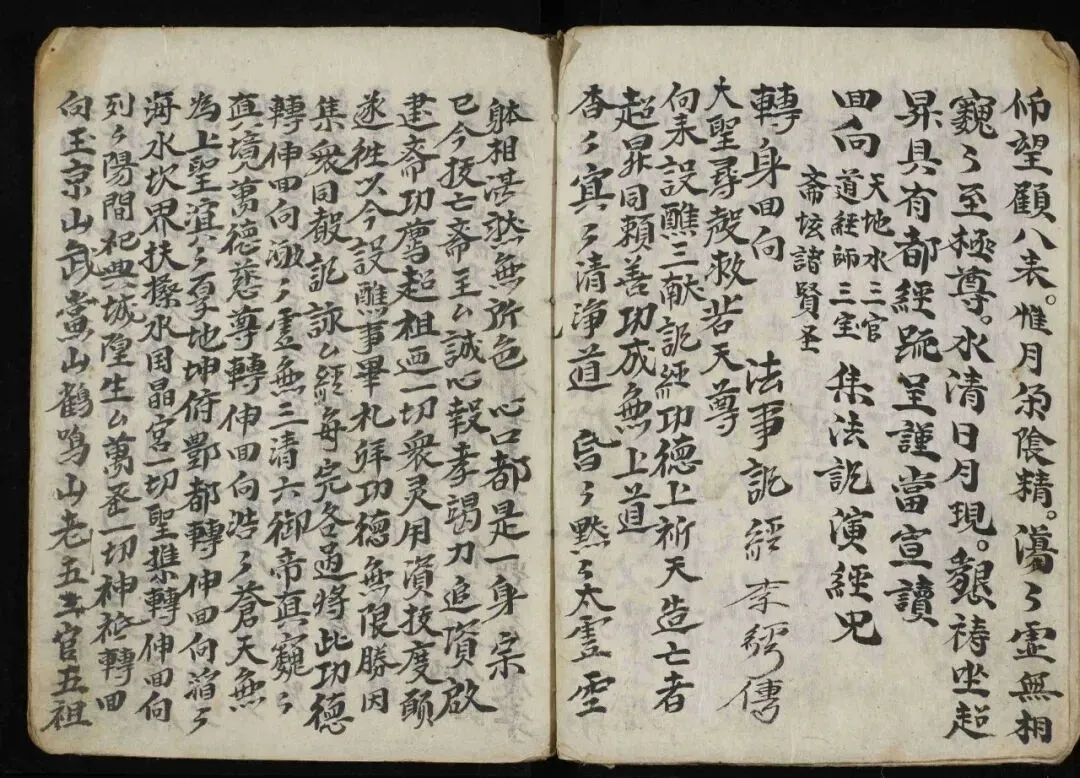 仰望顧八表。惟月朵陰精。蕩〻霊無相
巍〻至極尊。水清日月現。懇祷坐超
昇具有都經疏呈謹當宣讀
回向 天地水三官 集法説演經咒
道經師三宝
斋坛諸賢圣
轉身回向 法事説經
大聖尋殸救苦天尊
向来設醮三献説經功德上祈天造亡者
超昇同賴善功成無上道
杳〻冥〻清淨道 昏〻黙〻太霊空
躰相湛然無所色 心口都是一身宗
已今投亡斋主厶誠心報孝竭力追資啟
建斋功薦超祖靣一切衆灵用資投度願
遂徃以今設醮事畢礼拜功德無限勝因
集衆同殸説詠厶經每完各過将此功德
轉伸回向渺〻霊無三清六御帝真巍〻
真境萬德慈尊轉伸回向浩〻蒼天無
為上聖 地坤俯酆都轉伸回向滔〻
海水坎界扶桑水国晶宮一切聖 轉伸回向
列〻陽間祀典城隍生厶萬 一切神祗轉回
向玉京山武當山鶴鳴山老五 官五祖